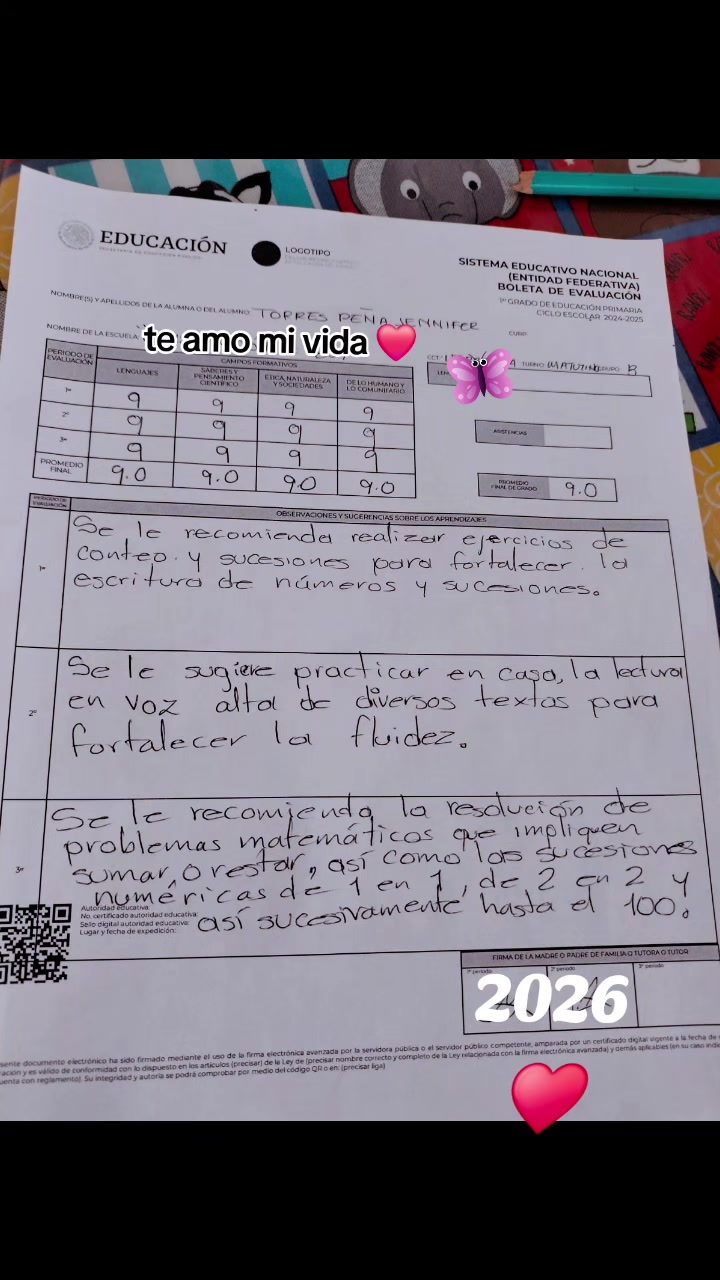 EDUCACIÓN
SECRETARÍA DE EDUCACIÓN PÚBLICA
LOGOTIPO
SISTEMA EDUCATIVO NACIONAL
(ENTIDAD FEDERATIVA)
BOLETA DE EVALUACIÓN
1er GRADO DE EDUCACIÓN PRIMARIA
CICLO ESCOLAR 2024-2025
NOMBRE(S) Y APELLIDOS DE LA ALUMNA O DEL ALUMNO: TORRES PEÑA JENNIFER
CURP:
NOMBRE DE LA ESCUELA:
te amo mi vida
CCT:
TURNO MATUTINO GRUPO B
PERIODO DE EVALUACIÓN
CAMPOS FORMATIVOS
LENGUAJES
SABERES Y PENSAMIENTO CIENTÍFICO
ÉTICA, NATURALEZA Y SOCIEDADES
DE LO HUMANO Y LO COMUNITARIO
1er 9 9 9 9
2º 9 9 9 9
3er 9 9 9 9
PROMEDIO FINAL 9.0 9.0 9.0 9.0
ASISTENCIAS
PROMEDIO FINAL DE GRADO 9.0
PERIODO DE EVALUACIÓN
OBSERVACIONES Y SUGERENCIAS SOBRE LOS APRENDIZAJES
1er
Se le recomienda realizar ejercicios de
conteo. y sucesiones para fortalecer. la
escritura de números y sucesiones.
2º
Se le sugiere practicar en casa, la lectura
en voz alta de diversos textos para
fortalecer la fluidez.
3er
Se le recomienda la resolución de
problemas matemáticos que impliquen
sumar o restar, así como las sucesiones
numéricas de 1 en 1, de 2 en 2 y
así sucesivamente hasta el 100.
Autoridad educativa:
No. certificado autoridad educativa:
Sello digital autoridad educativa:
Lugar y fecha de expedición:
FIRMA DE LA MADRE O PADRE DE FAMILIA O TUTORA O TUTOR
1er periodo
2º periodo
3er periodo
2026
sente documento electrónico ha sido firmado mediante el uso de la firma electrónica avanzada por la servidora pública o el servidor público competente, amparada por un certificado digital vigente a la fecha de
ración y es válido de conformidad con lo dispuesto en los artículos (precisar) de la Ley de (precisar nombre correcto y completo de la Ley relacionada con la firma electrónica avanzada) y demás aplicables (en su caso
uenta con reglamento). Su integridad y autoría se podrá comprobar por medio del código QR o en: (precisar liga)